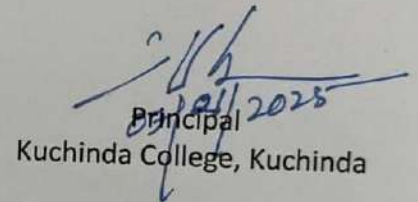 Principal
Kuchinda College, Kuchinda